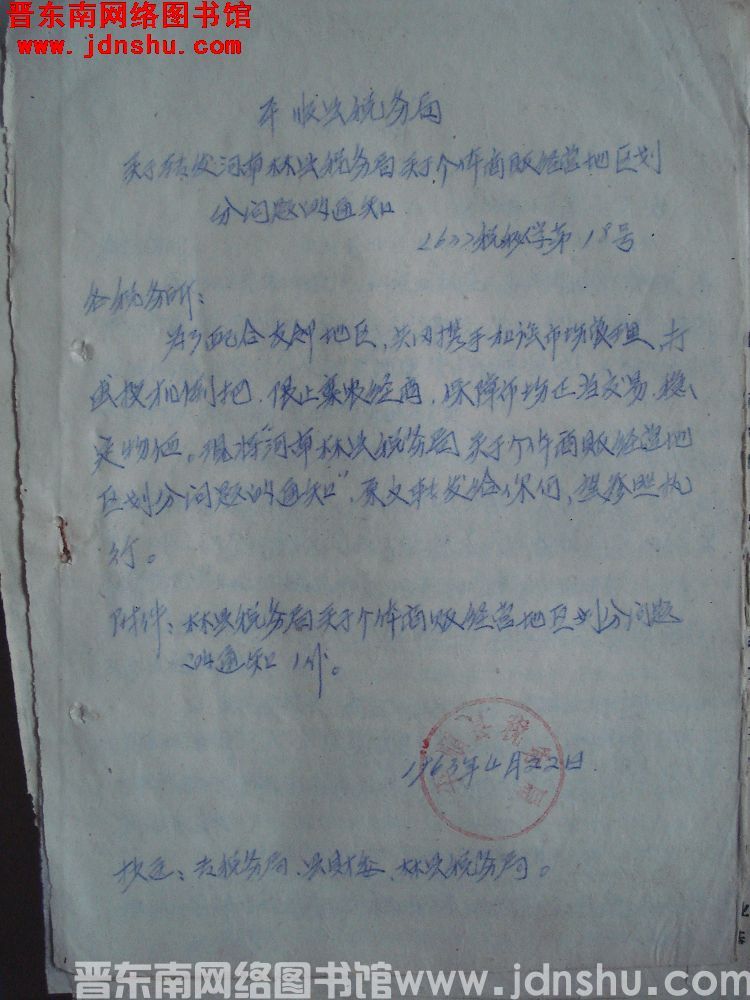 晋东南网络图书馆
www.jdnshu.com
平顺县税务局
关于转发河南林县税务局关于个体商贩经营地区划
分问题的通知
各税务所：
为了配合友邻地区，共同携手加强市场管理、打
击投机倒把，限止弃农经商，保障市场正当交易，稳
定物价。现将“河南林县税务局关于个体商贩经营地
区划分问题的通知”，原文转发给你们，望参照执
行。
附件：林县税务局关于个体商贩经营地区划分问题
的通知1份。
1963年4月22日
抄送：专税务局、县财委、林县税务局。
晋东南网络图书馆www.jdnshu.com